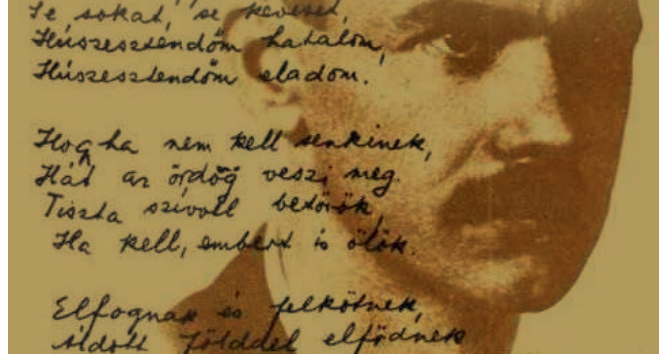 Se sokat, se keveset,
Húszesztendőm hatalom,
Húszesztendőm eladom.
Hogha nem kell senkinek,
Hát az ördög veszi meg.
Tiszta szívvel betörök,
Ha kell, embert is ölök.
Elfognak és felkötnek,
áldott földdel elfödnek